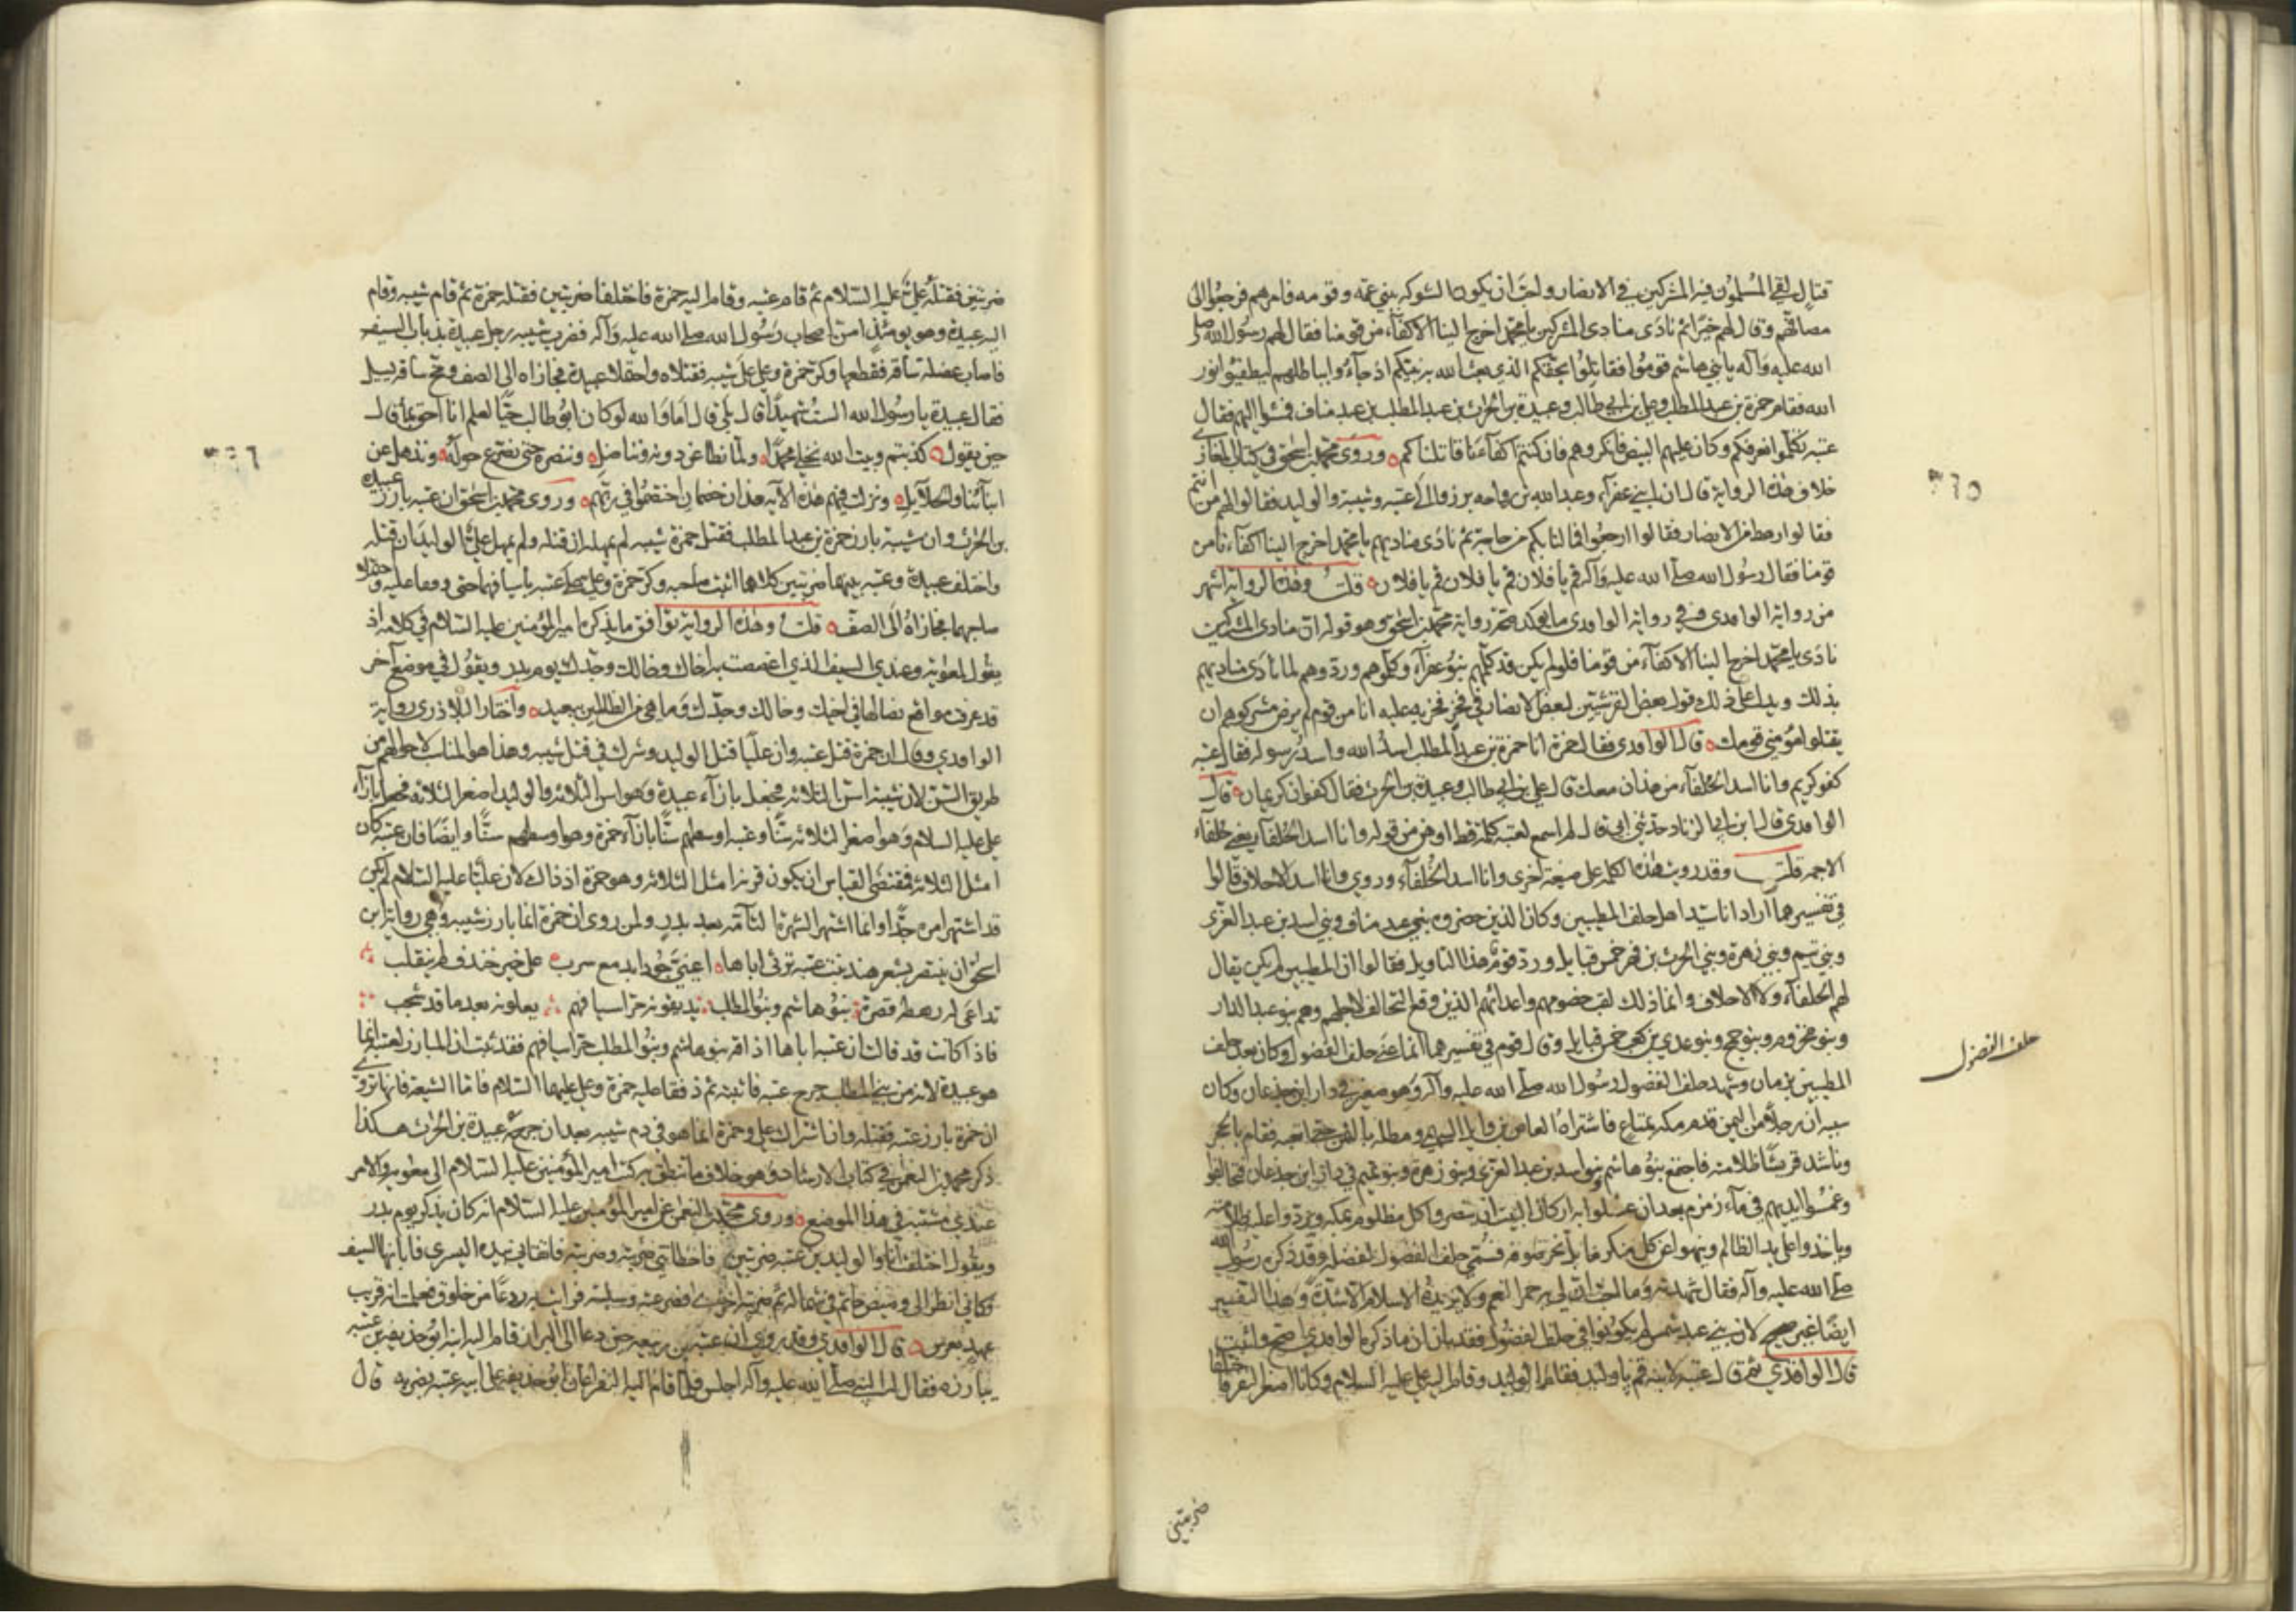 قتال لقي المسلمون فيه المشركين في الانصار واحب ان يكون الشوكه ببني عمه وقومه فامرهم فرجعوا الى
مصافهم وقال لهم خيرا ثم نادى منادى المشركين يا محمد اخرج الينا الاكفاء من قومنا فقال لهم رسول الله صلى
الله عليه وآله يا بني هاشم قوموا فقاتلوا بحقكم الذي بعث الله به نبيكم اذ جاؤا بباطلهم ليطفئوا نور
الله فقام حمزة بن عبد المطلب وعلي بن ابي طالب وعبيدة بن الحرث بن عبد المطلب بن عبد مناف فمشوا اليهم فقال
عتبه تكلموا نعرفكم وكان عليهم البيض فانكروهم فان كنتم اكفاءنا قاتلناكم وروى محمد بن اسحق في كتاب المغازي
خلاف هذه الرواية قال ان ابني عفراء وعبد الله بن رواحه برزوا الى عتبه وشيبه والوليد فقالوا لهم من انتم
فقالوا رهط من الانصار فقالوا ارجعوا فما لنا بكم من حاجة ثم نادى مناديهم يا محمد اخرج الينا اكفاءنا من
قومنا فقال رسول الله صلى الله عليه وآله قم يا فلان قم يا فلان قم يا فلان قلت وهذه الرواية اشهر
من رواية الواقدى وفي رواية الواقدى ما يؤكد صحة رواية محمد بن اسحق وهو قوله ان منادى المشركين
نادى يا محمد اخرج الينا الاكفاء من قومنا فلو لم يكن قد كلمهم بنو عفراء وكلموهم وردوهم لما نادى مناديهم
بذلك ويدل على ذلك قول بعض القرشيين لبعض الانصار في فخر فخر به عليه انا من قوم لم يرض مشركوهم ان
يقتلوا مؤمني قومك قال الواقدى فقال حمزة انا حمزة بن عبد المطلب اسد الله واسد رسوله فقال عتبه
كفو كريم وانا اسد الحلفاء من هذان معك قال علي بن ابي طالب وعبيدة بن الحرث فقال كفوان كريمان قال
الواقدى قال ابن ابي الزناد حدثني ابي قال لم اسمع لعتبه كلمة قط اوهن من قوله وانا اسد الحلفاء يعني حلفاء
الاجمه قلت وقد رويت هذه الكلمه على صيغة اخرى وانا اسد الحلفاء وروي وانا اسد الاحلاف قالوا
في تفسيرهما اراد انا سيد اهل حلف المطيبين وكان الذين حضروه بني عبد مناف وبني اسد بن عبد العزى
وبني تيم وبني زهرة وبني الحرث بن فهر خمس قبايل ورد قوم هذا التاويل فقالوا ان المطيبين لم يكن يقال
لهم الحلفاء ولا الاحلاف وانما ذلك لقب خصومهم واعدائهم الذين وقع التحالف لاجلهم وهم بنو عبد الدار
وبنو مخزوم وبنو سهم وبنو جمح وبنو عدي بن كعب خمس قبايل وقال قوم في تفسيرهما انما عنى حلف الفضول وكان بعد حلف
المطيبين بزمان وشهد حلف الفضول رسول الله صلى الله عليه وآله وهو صغير في دار ابن جدعان وكان
سببه ان رجلا من اليمن قدم مكه بمتاع فاشتراه العاص بن وايل السهمي ومطله بالثمن حتى اتعبه فقام بالحجر
وناشد قريشا ظلامته فاجتمع بنو هاشم وبنو اسد بن عبد العزى وبنو زهرة وبنو تميم في دار ابن جدعان فتحالفوا
وغمسوا ايديهم في ماء زمزم بعد ان غسلوا به اركان البيت ان ينصروا كل مظلوم بمكه ويردوا عليه ظلامته
وياخذوا على يد الظالم وينهوا عن كل منكر ما بل بحر صوفة فسمي حلف الفضول لفضله وقد ذكره رسول الله
صلى الله عليه وآله فقال شهدته وما احب ان لي به حمر النعم ولا يزيده الاسلام الا شدة وهذا التفسير
ايضا غير صحيح لان بني عبد شمس لم يكونوا في حلف الفضول فقد بان ان ما ذكره الواقدي اصح واثبت
قال الواقدي ثم قال عتبة لابنه قم يا وليد فقام الوليد وقام اليه علي عليه السلام وكانا اصغر النفر فاختلفا
حلف الفضول
٣٦٥
ضربتين
ضربتين فقتله علي عليه السلام ثم قام عتبه وقام اليه حمزة فاختلفا ضربتين فقتله حمزة ثم قام شيبه وقام
اليه عبيدة وهو يومئذ اسن اصحاب رسول الله صلى الله عليه وآله فضرب شيبه رجل عبيدة بذباب السيف
فاصاب عضلة ساقه فقطعها وكر حمزة وعلي على شيبه فقتلاه واحتملا عبيدة فحازاه الى الصف ومخ ساقه يسيل
فقال عبيدة يا رسول الله الست شهيدا قال بلى قال اما والله لو كان ابو طالب حيا لعلم انا احق بما قال
حين يقول كذبتم وبيت الله نخلي محمدا ولما نطاعن دونه ونناضل وننصره حتى نصرع حوله ونذهل عن
ابنائنا والحلائل ونزلت فيهم هذه الآيه هذان خصمان اختصموا في ربهم وروى محمد بن اسحق ان عتبه بارز عبيدة
بن الحرث وان شيبة بارز حمزة بن عبد المطلب فقتل حمزة شيبه لم يمهله ان قتله ولم يمهل علي الوليد ان قتله
واختلف عبيدة وعتبه بينهما ضربتين كلاهما اثبت صاحبه وكر حمزة وعلي على عتبه باسيافهما حتى دففا عليه واحتملا
صاحبهما فحازاه الى الصف قلت وهذه الرواية توافق ما يذكره امير المؤمنين عليه السلام في كلامه اذ
يقول لمعويه وعندي السيف الذي اعضضت به اخاك وخالك وجدك يوم بدر ويقول في موضع آخر
قد عرفت مواقع نصالها في اخيك وخالك وجدك وما هي من الظالمين ببعيد واختار البلاذرى رواية
الواقدي وقال ان حمزة قتل عتبه وان عليا قتل الوليد وشرك في قتل شيبه وهذا هو المناسب لاحوالهم من
طريق السن لان شيبة اسن الثلاثه فجعل بازاء عبيدة وهو اسن الثلاثه والوليد اصغر الثلاثة فجعل بازاء
علي عليه السلام وهو اصغر الثلاثه سنا وعتبه اوسطهم سنا بازاء حمزة وهو اوسطهم سنا وايضا فان عتبه كان
امثل الثلاثه فمقتضى القياس ان يكون قرنه امثل الثلاثه وهو حمزة اذ ذاك لان عليا عليه السلام لم يكن
قد اشتهر امره جدا وانما اشتهر الشهرة التامه بعد بدر ولمن روى ان حمزة انما بارز شيبه وهي رواية ابن
اسحق ان ينتصر بشعر هند بنت عتبه ترثي اباها اعيني جودا بدمع سرب على خير خندف لم ينقلب
تداعى له رهطه قصرة بنو هاشم وبنو المطلب يذيقونه حر اسيافهم يعلونه بعد ما قد شجب
فاذا كانت قد قالت ان عتبه اباها اذاقه بنو هاشم وبنو المطلب حر اسيافهم فقد ثبت ان المبارز لعتبه انما
هو عبيدة لانه من بني المطلب جرح عتبه فاثبته ثم ذفف عليه حمزة وعلي عليهما السلام فاما الشيعة فانها تروي
ان حمزة بارز عتبه فقتله وان اشتراك علي وحمزة انما هو في دم شيبه بعد ان جرحه عبيدة بن الحرث هكذا
ذكر محمد بن النعمن في كتاب الارشاد وهو خلاف ما تنطق به كتب امير المؤمنين عليه السلام الى معويه والامر
عندي مشتبه في هذا الموضع وروى محمد بن النعمن عن امير المؤمنين عليه السلام انه كان يذكر يوم بدر
ويقول اختلف انا والوليد بن عتبه ضربتين فاخطاتني ضربته وضربته فاتقاني بيده اليسرى فابانها السيف
فكاني انظر الى وميض خاتم في شماله ثم ضربته اخرى فصرعته وسلبته فرايت به ردعا من خلوق فعلمت انه قريب
عهد بعرس قال الواقدي وقد روي ان عتبه بن ربيعه حين دعا الى البراز قام اليه ابنه ابو حذيفه بن عتبه
يبارزه فقال له النبي صلى الله عليه وآله اجلس فلما قام اليه النفر اعان ابو حذيفه على ابيه عتبه بضربه قال
٣٦٦